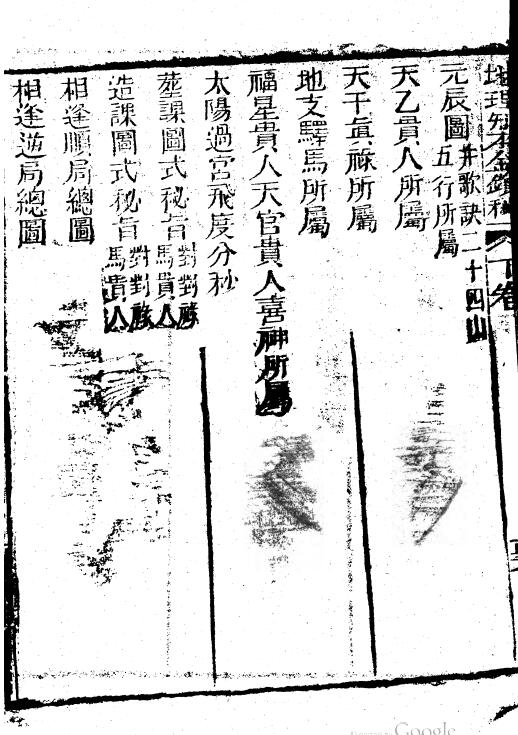 下卷
元辰圖并歌訣二十四山五行所屬
天乙貴人所屬
天干真祿所屬
地支驛馬所屬
福星貴人天官貴人喜神所屬
太陽過宮飛度分秒
塟課圖式秘旨對祿對馬貴人
造課圖式秘旨對祿對馬貴人
相逢順局總圖
相逢逆局總圖
Google